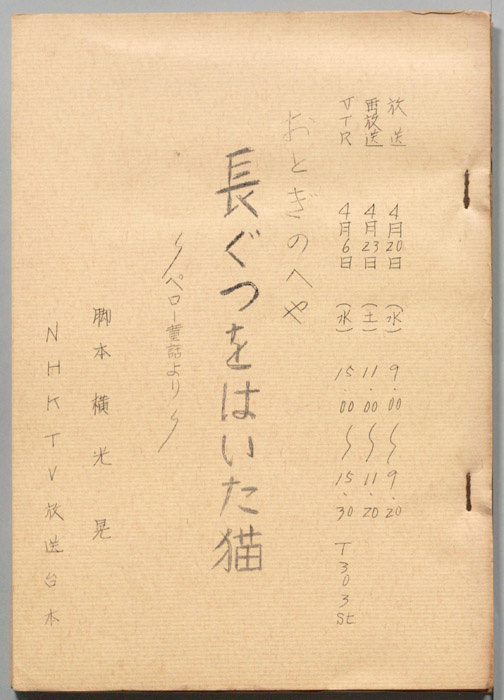 放送 4月20日(水) 9.00〜9.20
再放送 4月23日(土) 11.00〜11.20
VTR 4月6日(水) 15.00〜15.30 T303St
おとぎのへや
長ぐつをはいた猫
〜ペロー童話より〜
脚本 横光 晃
NHKTV放送台本